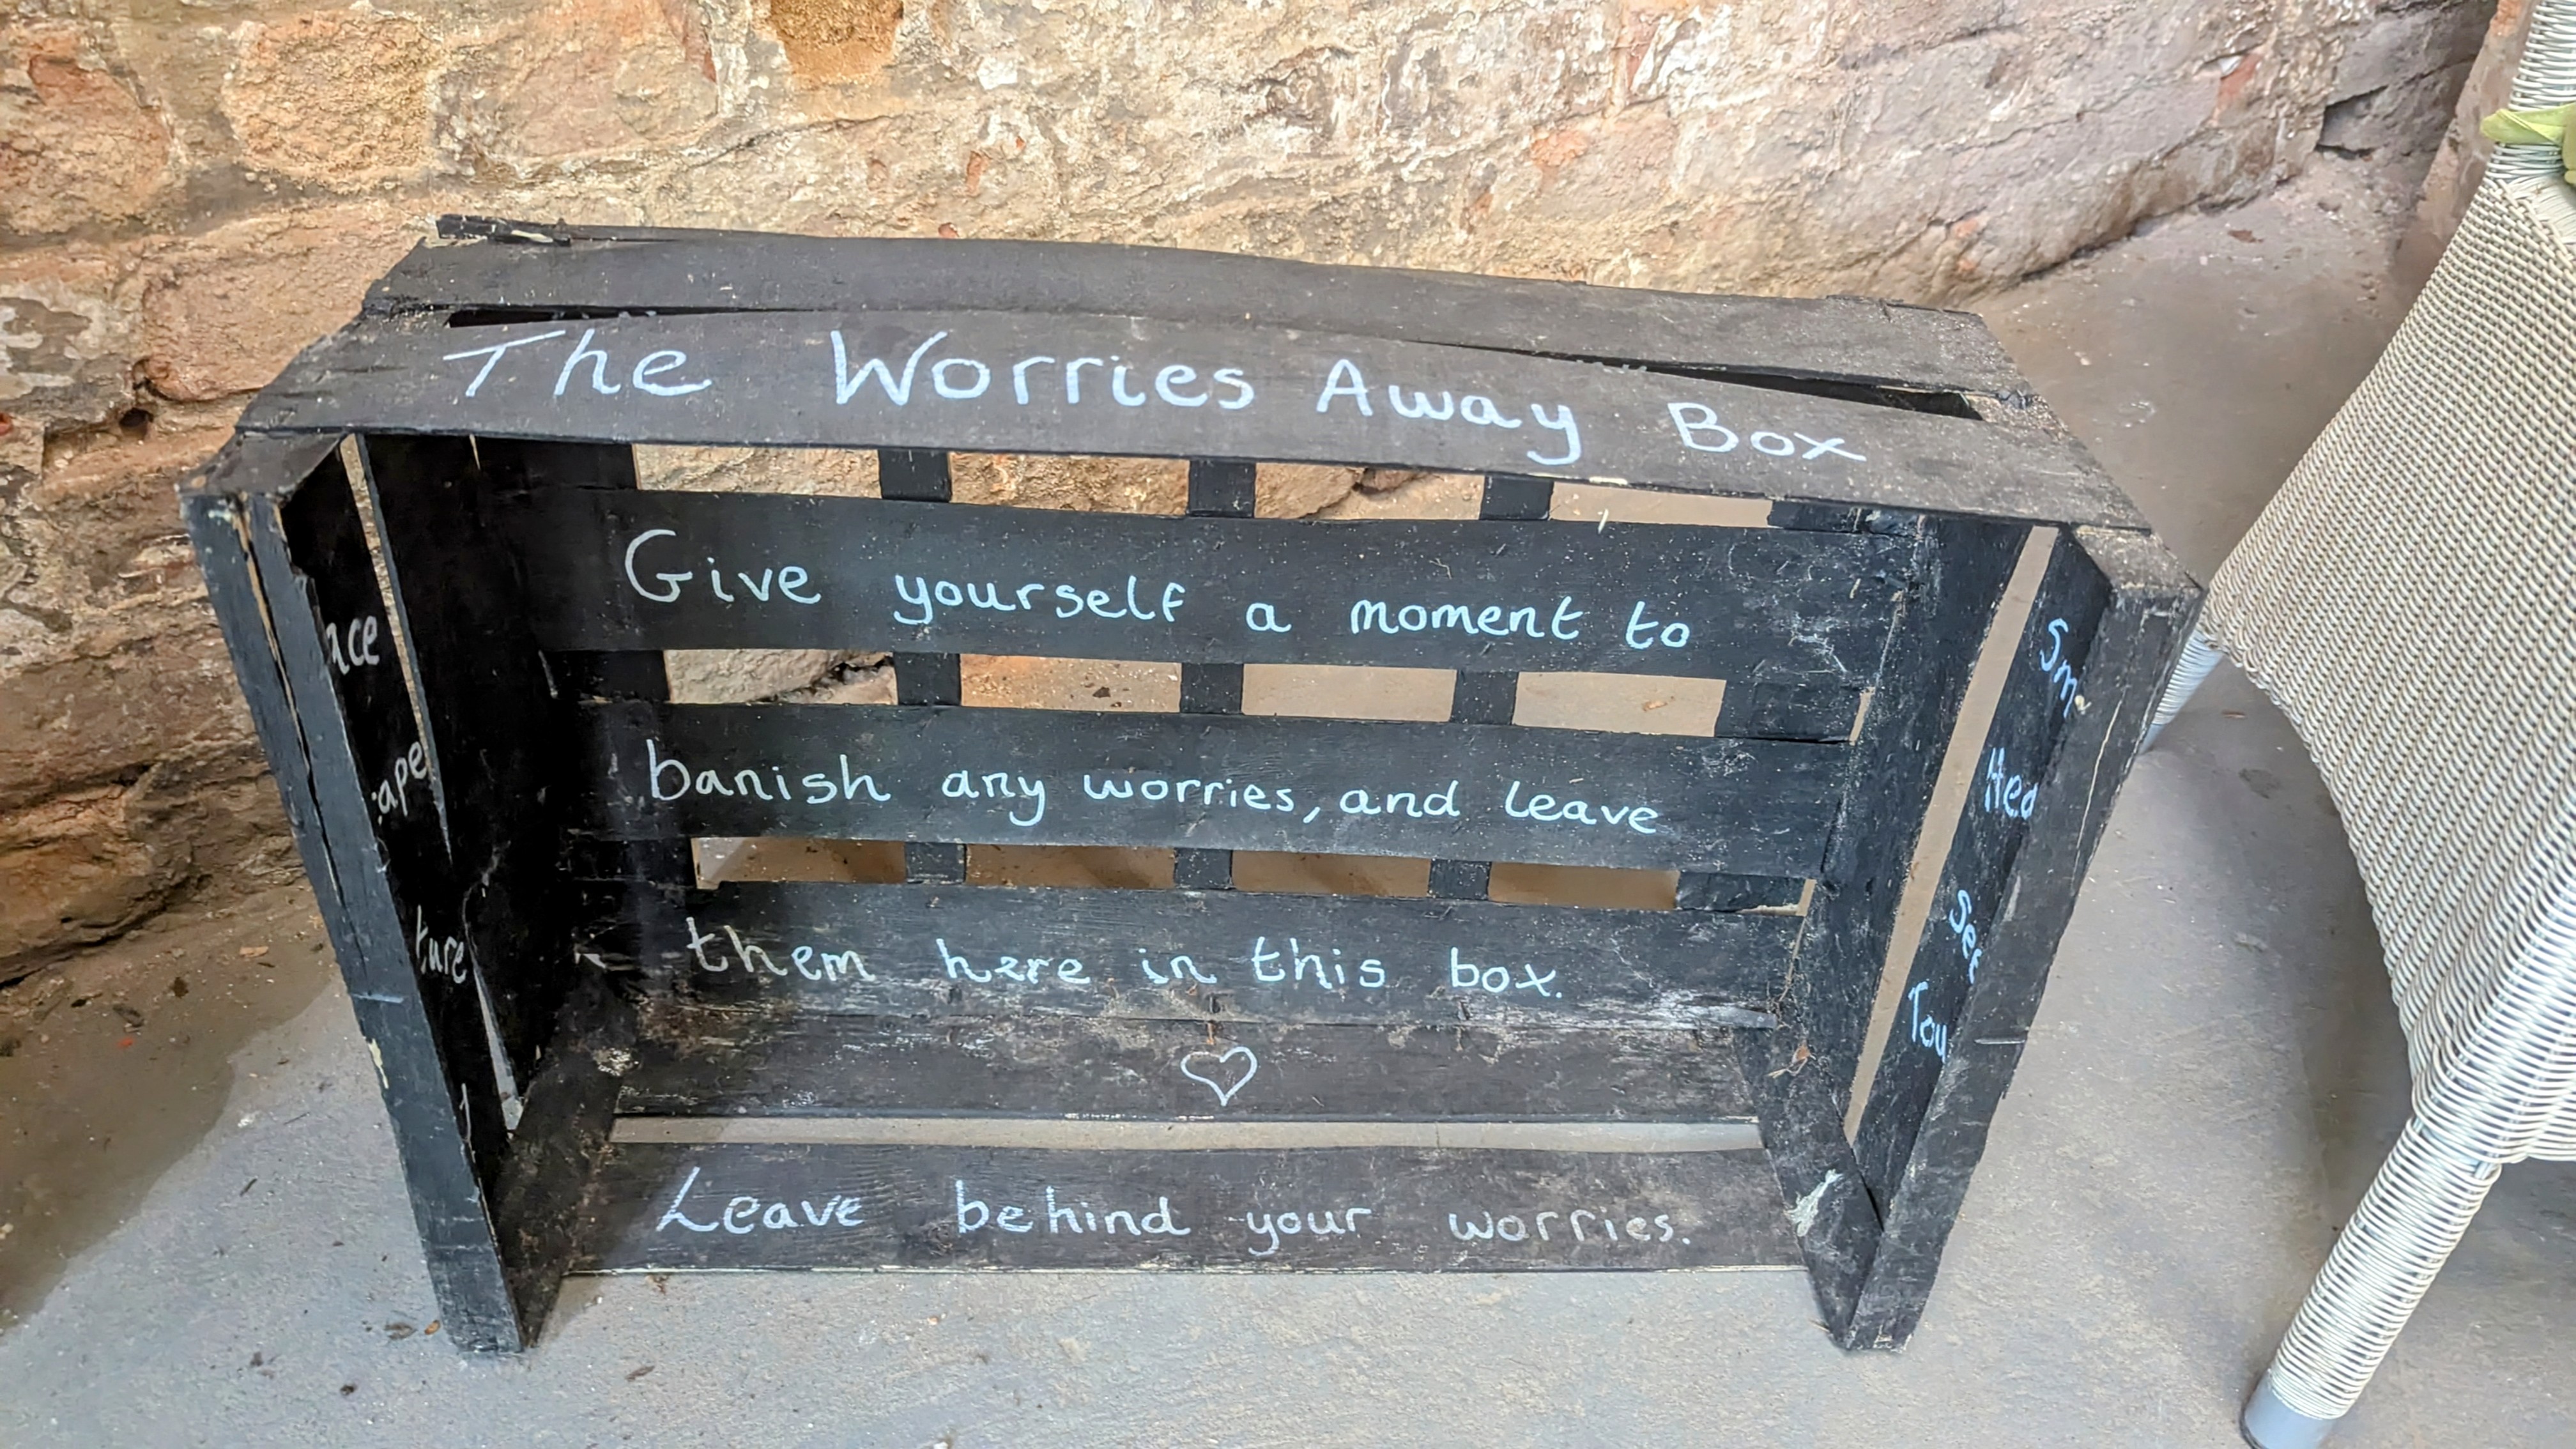 The Worries Away Box
Give yourself a moment to
banish any worries, and leave
them here in this box.
Leave behind your worries.